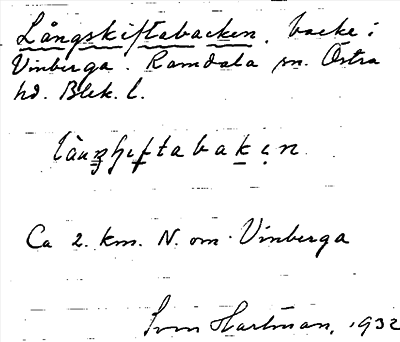 Långskiftabacken. backe i
Vinberga. Ramdala sn. Östra
hd. Blek. l.
Ca 2. km. N. om Vinberga
Sven Hartman, 1932